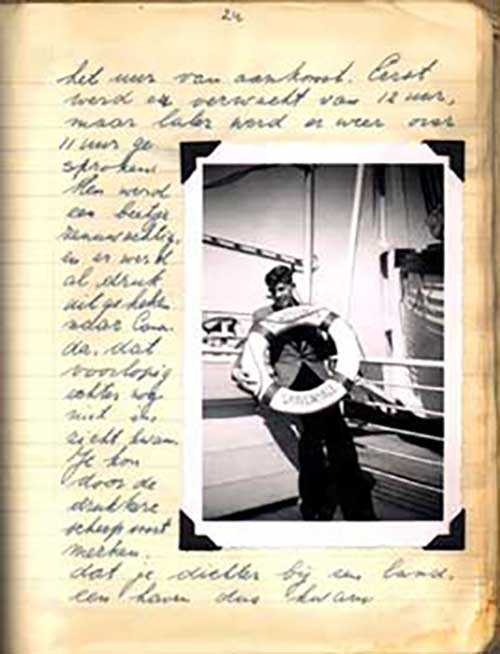 24
het uur van aankomst. Eerst
werd er verwacht van 12 uur,
maar later werd er weer over
11 uur ge
sproken.
Men werd
een beetje
zenuwachtig,
en er werd
al druk
uitgekeken
naar Cana
da, dat
voorlopig
echter nog
niet in
zicht kwam.
Je kon
door de
drukkere
scheepvaart
merken,
dat je dichter bij een land,
een haven dus kwam